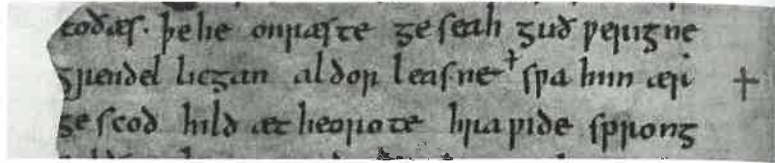 eodæs· þe he onræste geseah guð ƿerigne
grendel licgan aldor leasne sƿa him ær
gescod hild æt heorote hra ƿide sprong